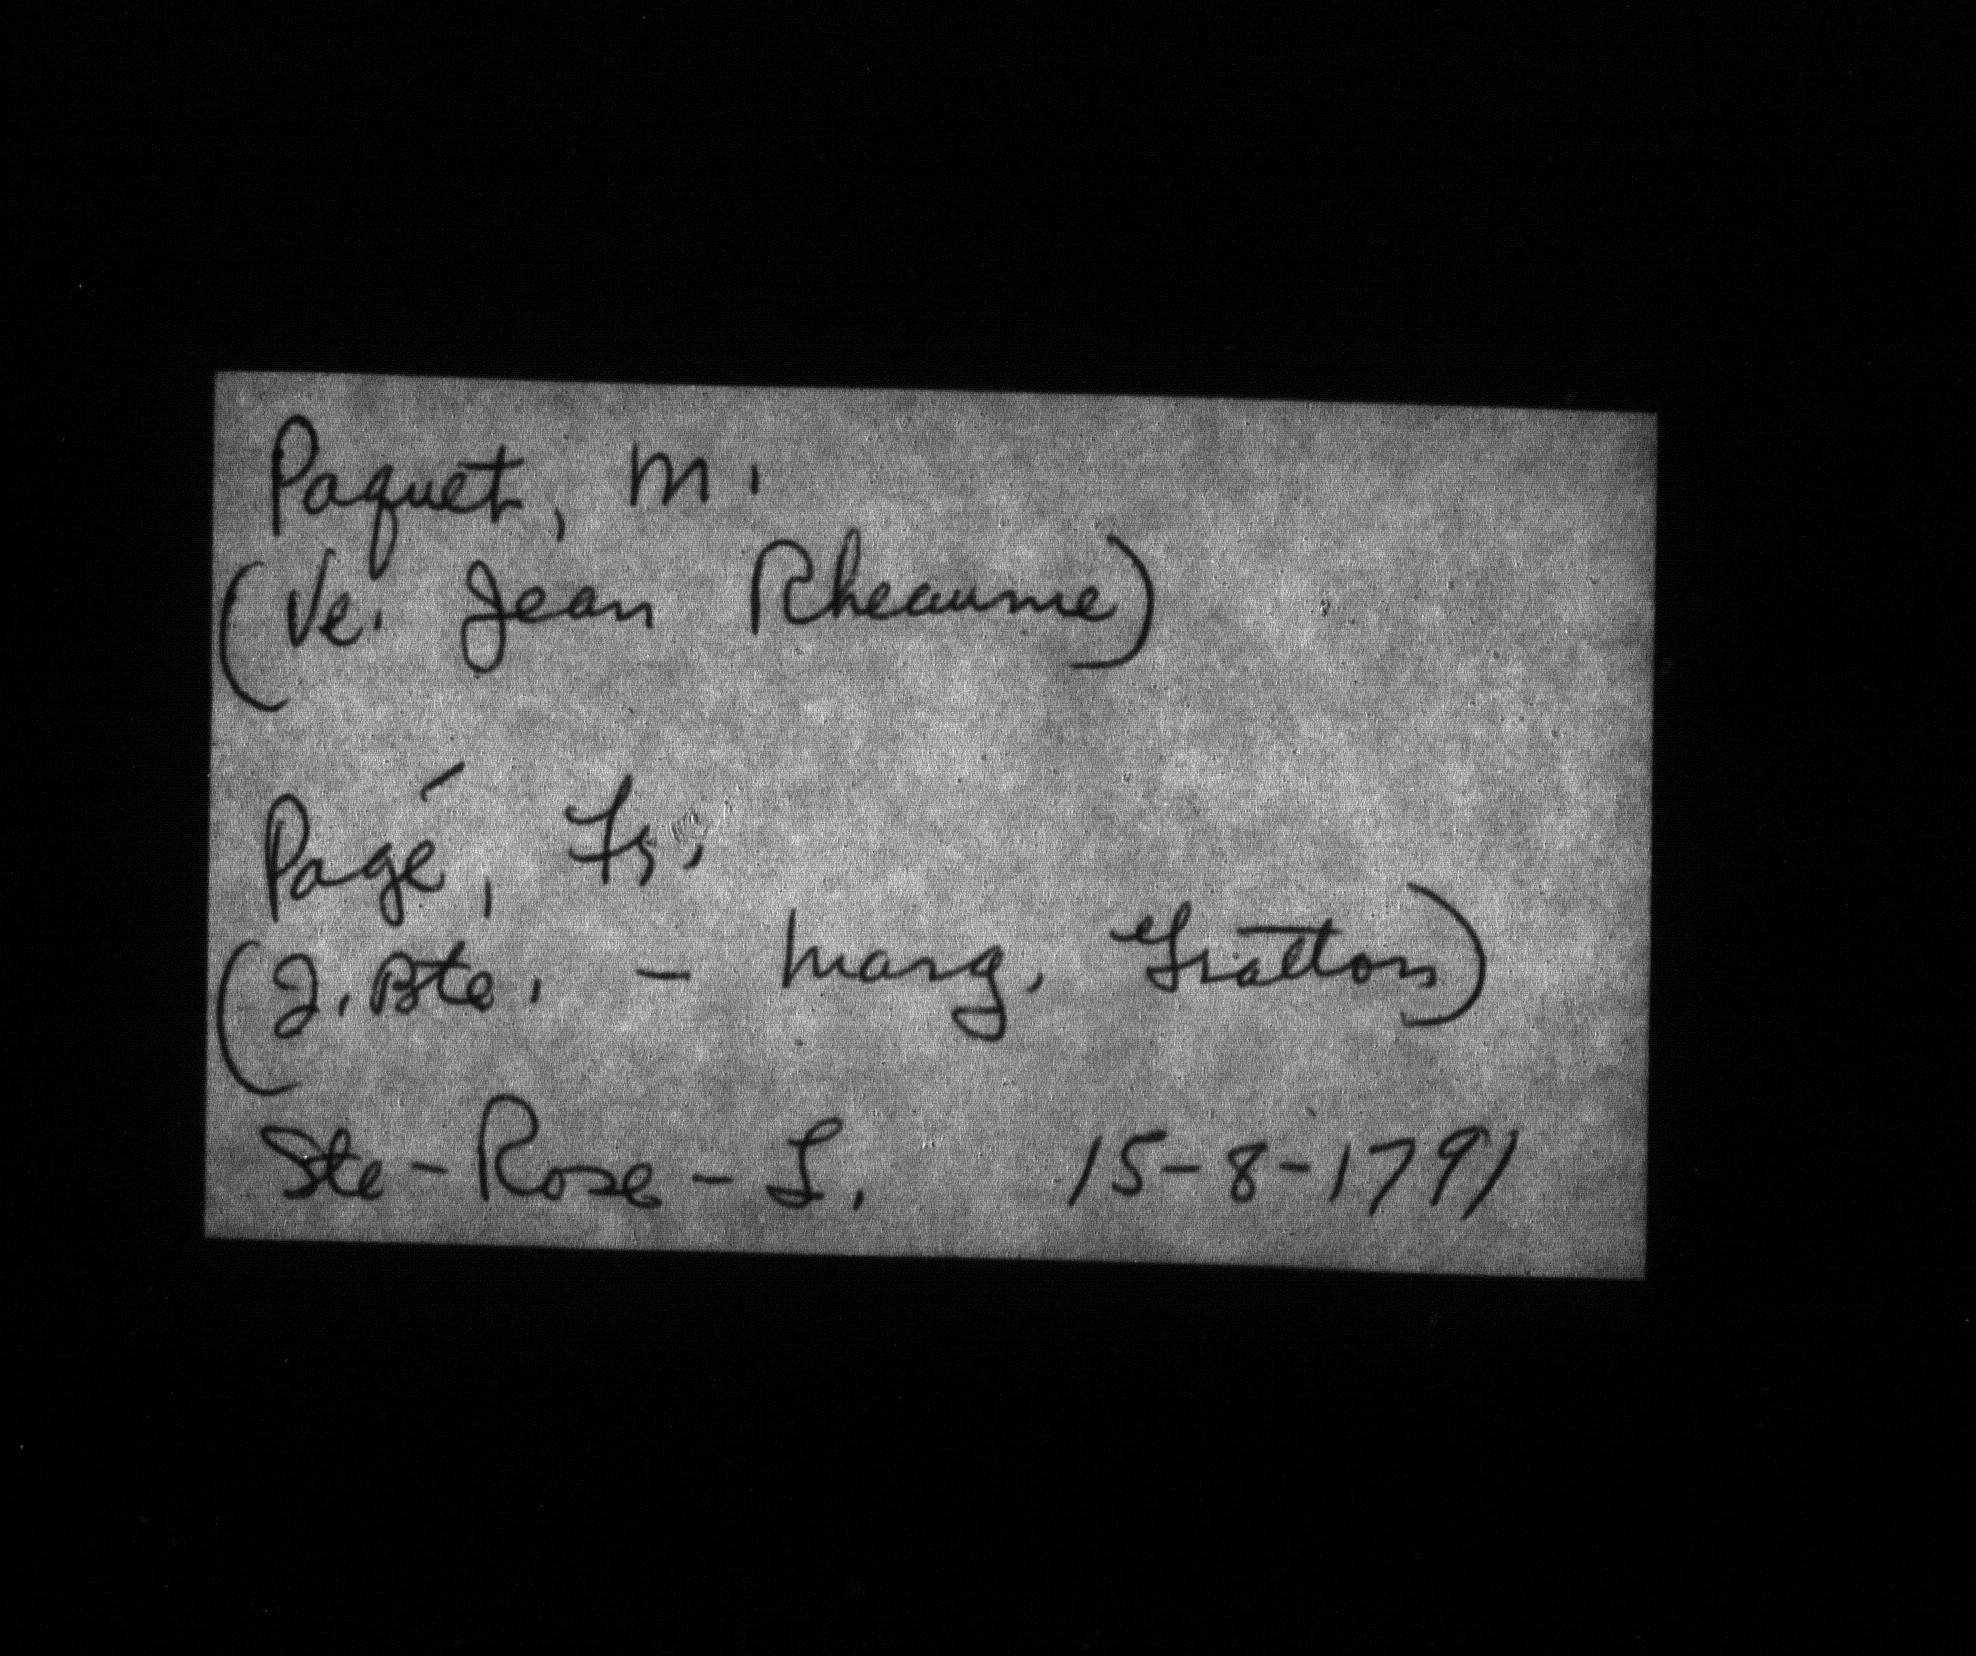 Paquet, M.
(Ve. Jean Rheaume)
Pagé, Fs.
(J. Bte. - Marg. Gratton)
Ste-Rose-L. 15-8-1791